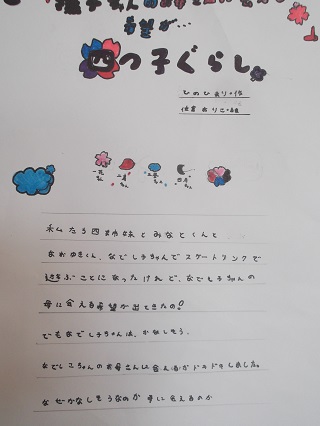 希望が…
四つ子ぐらし
ひのひまり・作
佐倉おりこ・絵
一花ちゃん 二鳥ちゃん 三風ちゃん 四月ちゃん
私たち四姉妹とみなとくんと
なおゆきくん、なでしこちゃんでスケートリンクで
遊ぶことになったけれど、なでしこちゃんの
母に会える希望が出てきたの!
でもなでしこちゃんは、かなしそう。
なでしこちゃんのお母さんに会えるかドキドキしました。
なぜかなしそうなのか 母に会えるのか